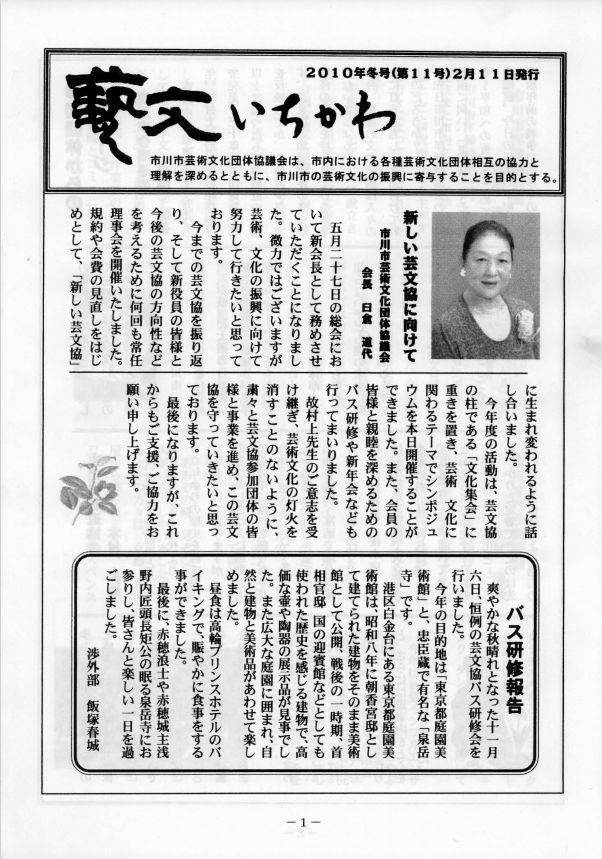 2010年冬号(第11号)2月11日発行
藝文いちかわ
市川市芸術文化団体協議会は、市内における各種芸術文化団体相互の協力と
理解を深めるとともに、市川市の芸術文化の振興に寄与することを目的とする。
新しい芸文協に向けて
市川市芸術文化団体協議会
会長 臼倉 道代
五月二十七日の総会にお
いて新会長として務めさせ
ていただくことになりまし
た。微力ではございますが
芸術、文化の振興に向けて
努力して行きたいと思って
おります。
今までの芸文協を振り返
り、そして新役員の皆様と
今後の芸文協の方向性など
を考えるために何回も常任
理事会を開催いたしました。
規約や会費の見直しをはじ
めとして、「新しい芸文協」
に生まれ変われるように話
し合いました。
今年度の活動は、芸文協
の柱である「文化集会」に
重きを置き、芸術 文化に
関わるテーマでシンポジュ
ウムを本日開催することが
できました。また、会員の
皆様と親睦を深めるための
バス研修や新年会なども
行ってまいりました。
故村上先生のご意志を受
け継ぎ、芸術文化の灯火を
消すことのないように、
粛々と芸文協参加団体の皆
様と事業を進め、この芸文
協を守っていきたいと思っ
ております。
最後になりますが、これ
からもご支援、ご協力をお
願い申し上げます。
バス研修報告
爽やかな秋晴れとなった十一月
六日、恒例の芸文協バス研修会を
行いました。
今年の目的地は「東京都庭園美
術館」と、忠臣蔵で有名な「泉岳
寺」です。
港区白金台にある東京都庭園美
術館は、昭和八年に朝香宮邸とし
て建てられた建物をそのまま美術
館として公開、戦後の一時期、首
相官邸 国の迎賓館などとしても
使われた歴史を感じる建物で、高
価な壷や陶器の展示品が見事でし
た。また広大な庭園に囲まれ、自
然と建物と美術品があわせて楽し
めました。
昼食は高輪プリンスホテルのバ
イキングで、賑やかに食事をする
事ができました。
最後に、赤穂浪士や赤穂城主浅
野内匠頭長矩公の眠る泉岳寺にお
参りし、皆さんと楽しい一日を過
ごしました。
渉外部 飯塚春城
－1－